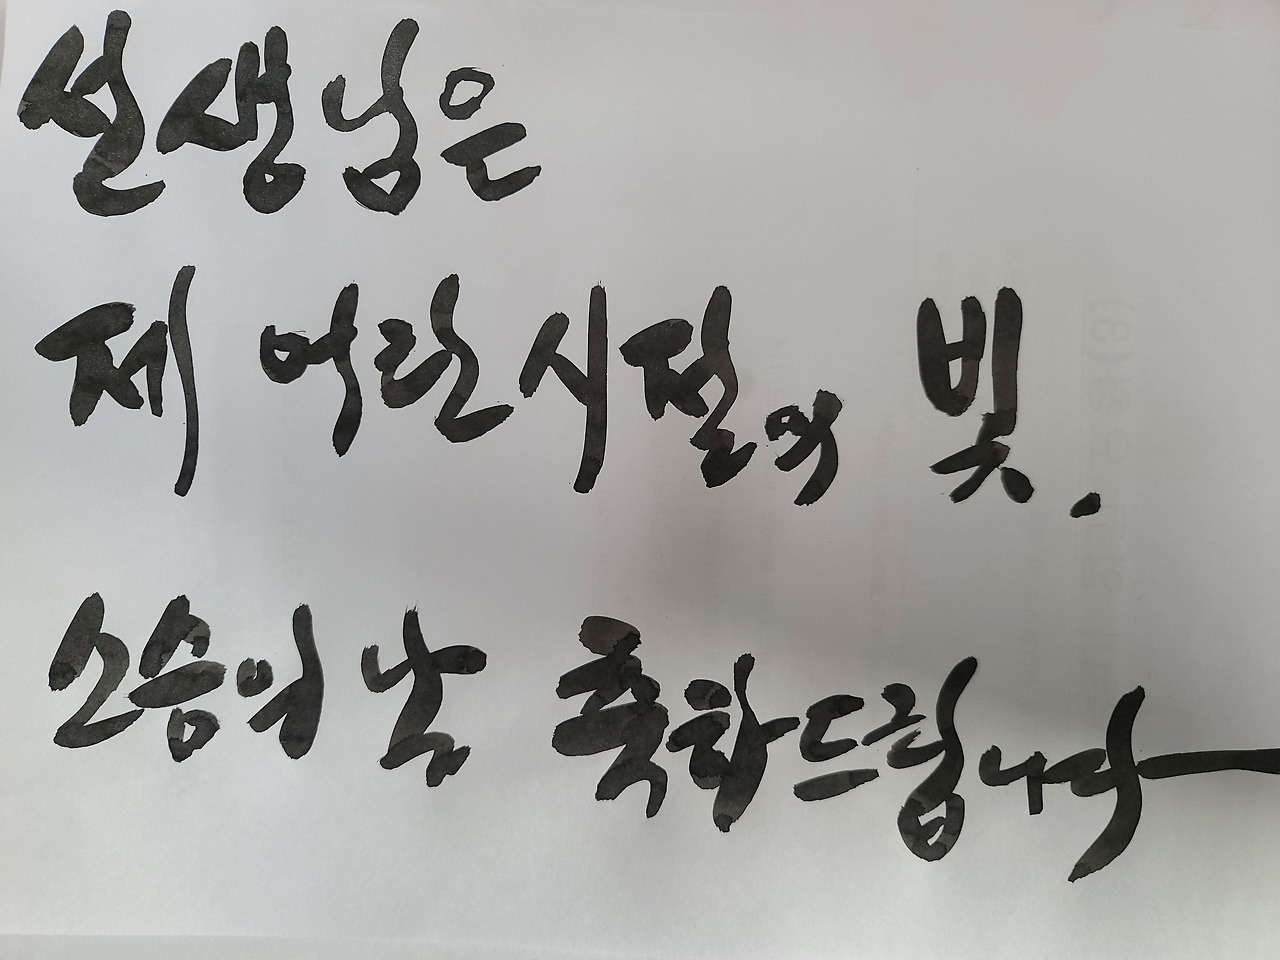 선생님은
제 어린시절의 빛.
스승의 날 축하드립니다